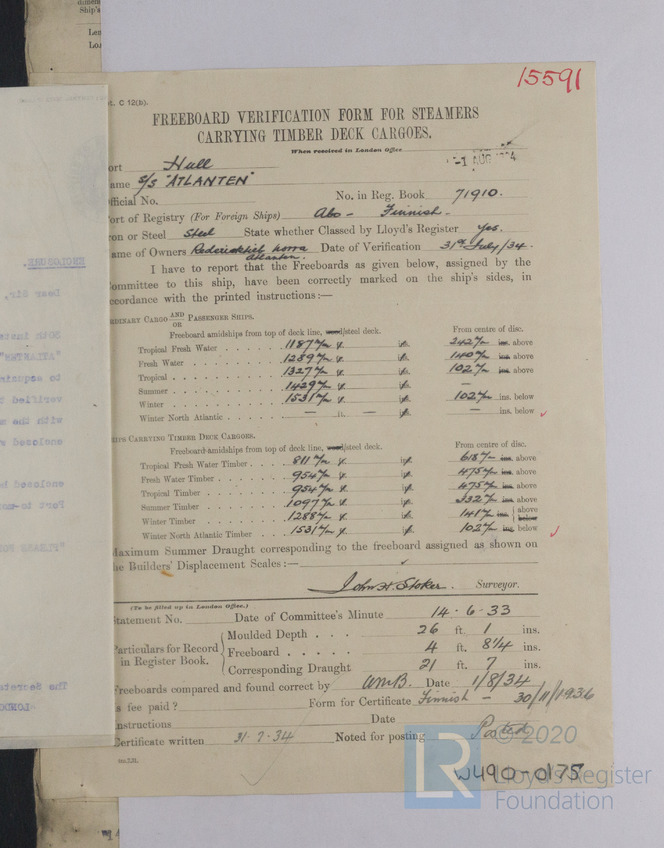 15591
t. C 12(b).
FREEBOARD VERIFICATION FORM FOR STEAMERS
CARRYING TIMBER DECK CARGOES.
When received in London Office
-1 AUG
ort Hull
ame S/S "ATLANTEN"
fficial No. No. in Reg. Book 71910.
ort of Registry (For Foreign Ships) Abo - Finnish.
on or Steel Steel State whether Classed by Lloyd's Register Yes.
ame of Owners Atlanten. Date of Verification 31st July/34.
I have to report that the Freeboards as given below, assigned by the
ommittee to this ship, have been correctly marked on the ship's sides, in
ccordance with the printed instructions:—
RDINARY CARGO AND OR PASSENGER SHIPS.
Freeboard amidships from top of deck line, wood/steel deck. From centre of disc.
Tropical Fresh Water 1187 m/m 242 m/m ins. above
Fresh Water 1289 m/m 140 m/m ins. above
Tropical 1327 m/m 102 m/m ins. above
Summer 1429 m/m —
Winter 1531 m/m 102 m/m ins. below
Winter North Atlantic — ft. — — ins. below
IPS CARRYING TIMBER DECK CARGOES.
Freeboard amidships from top of deck line, wood/steel deck. From centre of disc.
Tropical Fresh Water Timber 811 m/m 618 m/m ins. above
Fresh Water Timber 954 m/m 475 m/m ins. above
Tropical Timber 954 m/m 475 m/m ins. above
Summer Timber 1097 m/m 332 m/m ins. above
Winter Timber 1288 m/m 141 m/m ins. above below
Winter North Atlantic Timber 1531 m/m 102 m/m ins. below
Maximum Summer Draught corresponding to the freeboard assigned as shown on
he Builders' Displacement Scales:—
John H. Stoker. Surveyor.
(To be filled up in London Office.)
tatement No. Date of Committee's Minute 14.6.33
Particulars for Record in Register Book.
Moulded Depth 26 ft. 1 ins.
Freeboard 4 ft. 8¼ ins.
Corresponding Draught 21 ft. 7 ins.
Freeboards compared and found correct by Date 1/8/34
s fee paid? Form for Certificate Finnish - 30/11/1936
nstructions Date
Certificate written 31.7.34 Noted for posting Posted
© 2020
W490-0175
LR Lloyd's Register
Foundation
ENCLOSURE.
Dear Sir,